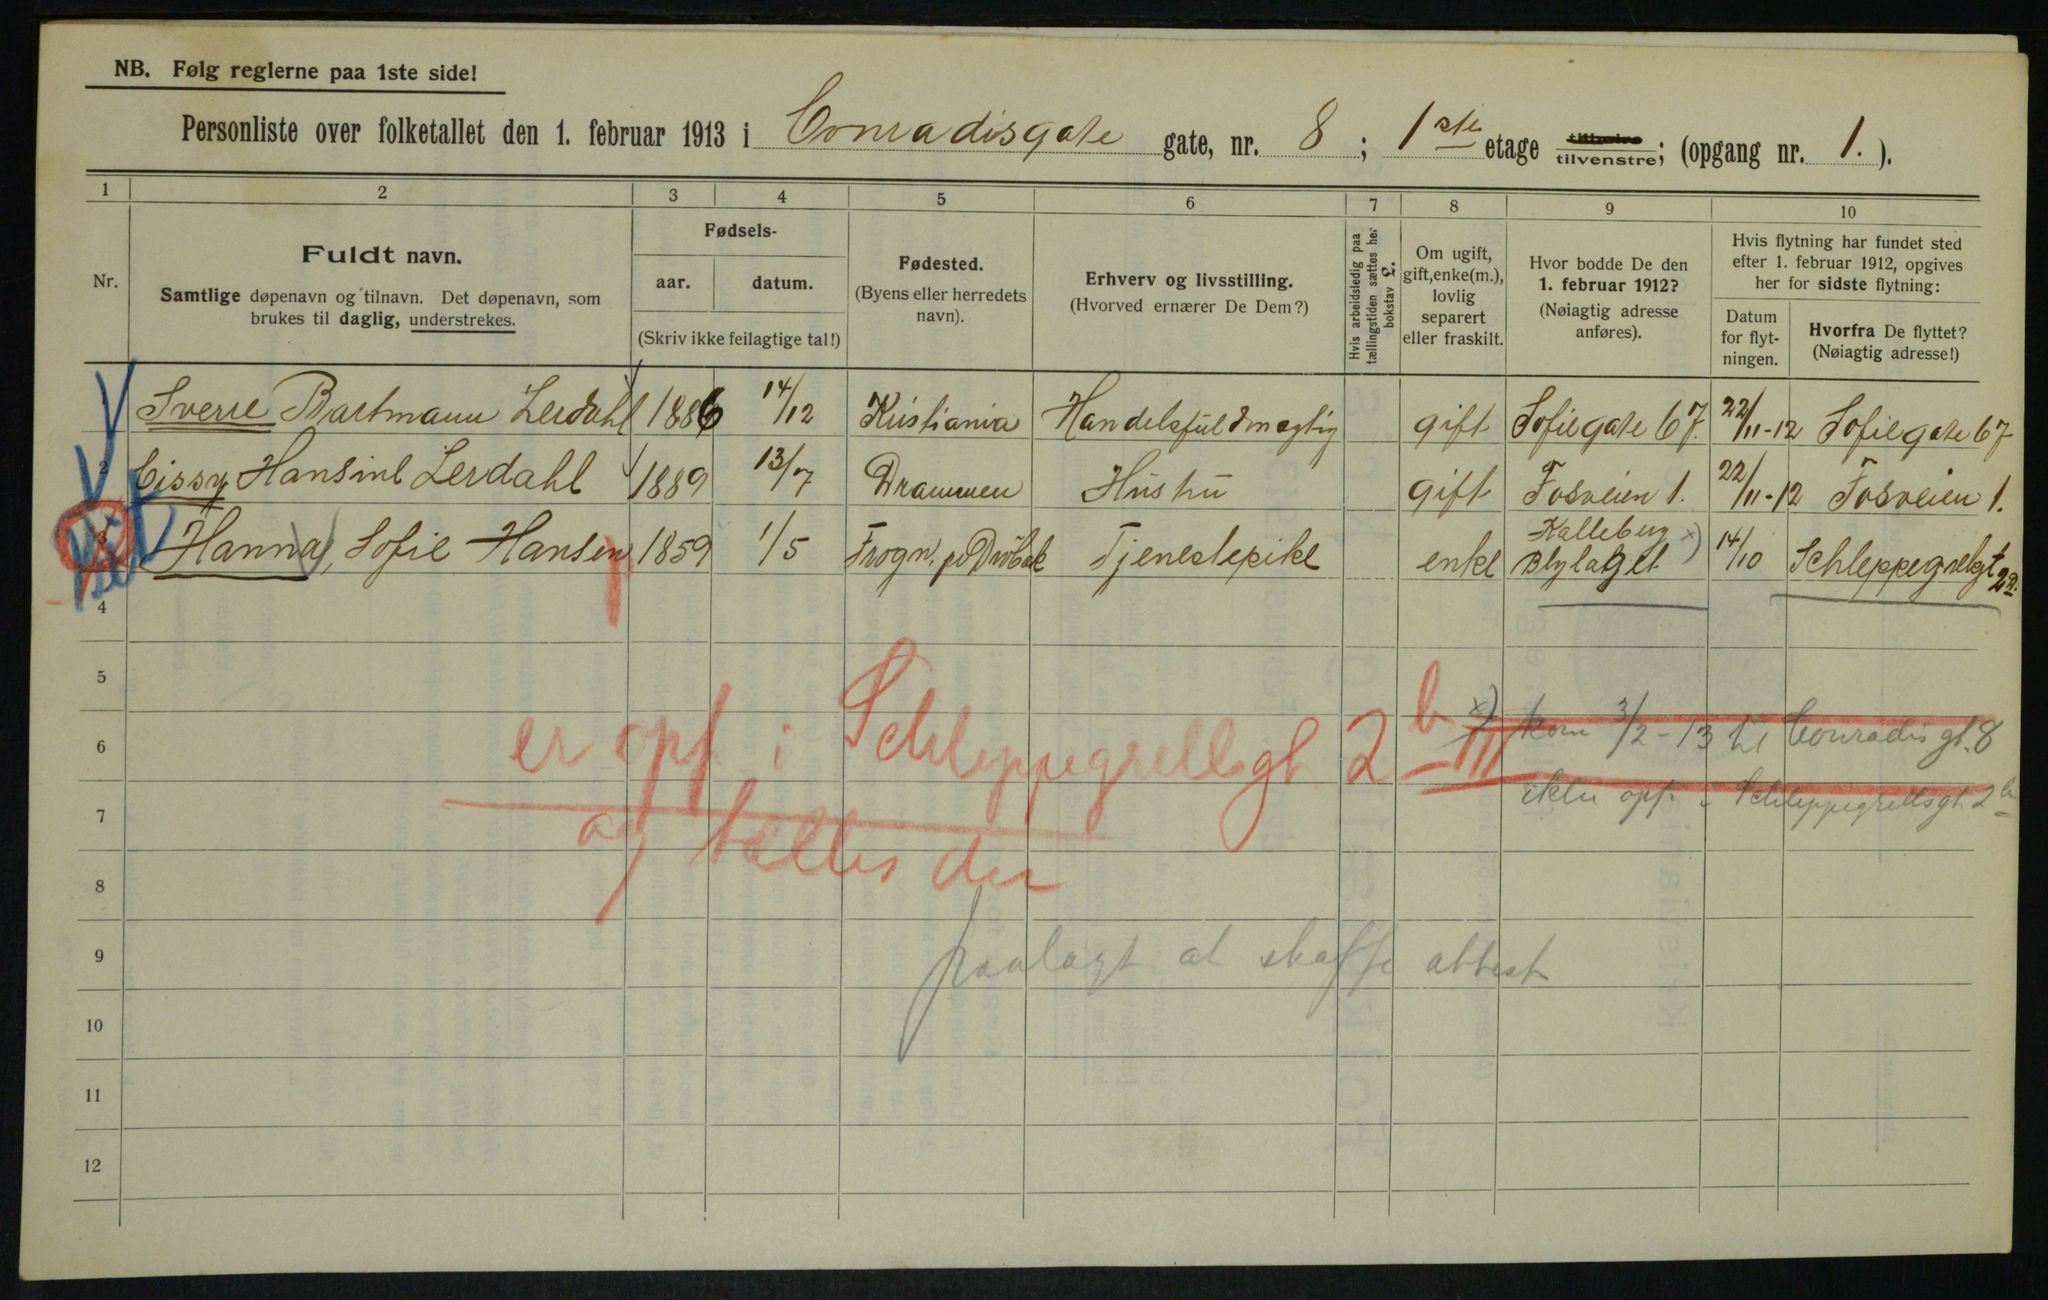 NB. Følg reglerne paa 1ste side!
Personliste over folketallet den 1. februar 1913 i Conradisgate gate, nr. 8 ; 1ste etage tilhøire tilvenstre; (opgang nr. 1. ).
1 2 3 4 5 6 7 8 9 10
Nr.
Fuldt navn.
Samtlige døpenavn og tilnavn. Det døpenavn, som
brukes til daglig, understrekes.
Fødsels-
aar. datum.
(Skriv ikke feilagtige tal!)
Fødested.
(Byens eller herredets
navn).
Erhverv og livsstilling.
(Hvorved ernærer De Dem?)
Hvis arbeidsledig paa
tællingstiden sættes her
bokstav L.
Om ugift,
gift, enke(m.),
lovlig
separert
eller fraskilt.
Hvor bodde De den
1. februar 1912?
(Nøiagtig adresse
anføres).
Hvis flytning har fundet sted
efter 1. februar 1912, opgives
her for sidste flytning:
Datum
for flyt-
ningen.
Hvorfra De flyttet?
(Nøiagtig adresse!)
Sverre Bartmann Lerdahl 1886 14/12 Kristiania Handelsfuldmægtig gift Sofiegate 67. 22/11-12 Sofiegate 67
2 Cissy Hansine Lerdahl 1889 13/7 Drammen Hustru gift Fosveien 1. 22/11-12 Fosveien 1.
3 Hanna, Sofie Hansen 1859 1/5 Frogn, pr Drøbak Tjenestepike enke Kalleberg x) Blylaget 14/10 Schleppegrelsgt 2B.
4
5
er opf i Schleppegrellsgt. 2 b III
og tælles der
6 x) kom 3/2-13 til Conradis gt. 8
7 ikke opf. i Schleppegrellsgt. 2b
8
9 paalagt at skaffe attest
10
11
12